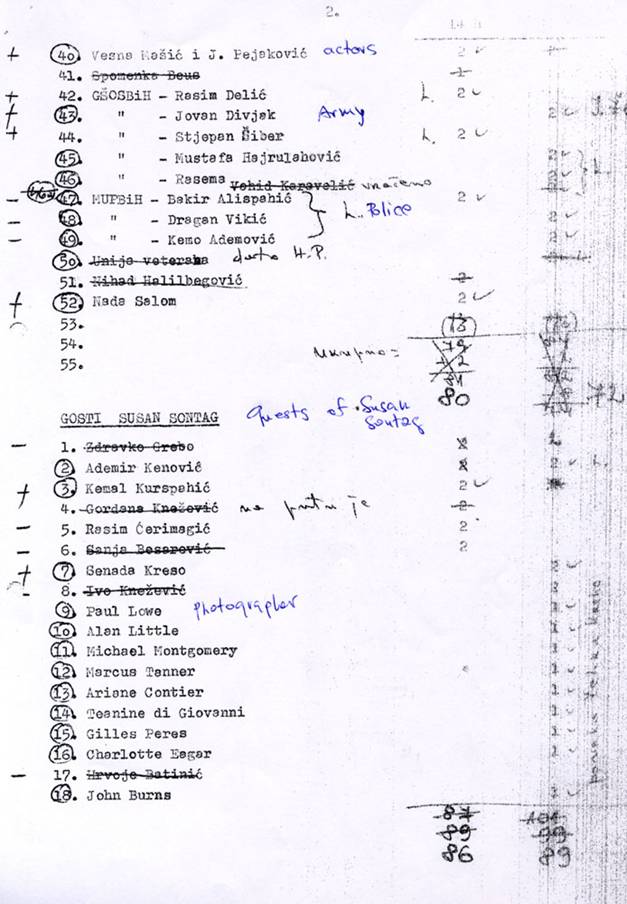 2.
+ 40. Vesna Mašić i J. Pejaković actors 2 ✓
41. Spomenka Beus 1
+ 42. GŠOSBiH - Rasim Delić L. 2 ✓
+ 43. " - Jovan Divjak Army 2 ✓
+ 44. " - Stjepan Šiber L. 2 ✓
45. " - Mustafa Hajrulahović 2 ✓
46. " - Rasema Vehid Karavelić vraćeno 2 ✓
- 47. MUPBiH - Bakir Alispahić 2 ✓
- 48. " - Dragan Vikić L. Police 2 ✓
- 49. " - Kemo Ademović 2 ✓
50. Unija veterana H.P.
51. Nihad Halilbegović 2
+ 52. Nada Salom 2 ✓
53. 78
54. Ukupno = 79
55. + 2
81
80 72
GOSTI SUSAN SONTAG Guests of Susan Sontag
- 1. Zdravko Grebo 2 2
2. Ademir Kenović 2 2 ✓ L.
+ 3. Kemal Kurspahić 2 ✓
4. Gordana Knežević na putu je 2
- 5. Rasim Ćerimagić 2
- 6. Sanja Besarović 2
+ 7. Senada Kreso 2 ✓
- 8. Ivo Knežević
9. Paul Lowe photographer
10. Alan Little
11. Michael Montgomery
12. Marcus Tanner
13. Ariane Contier
14. Teanine di Giovanni
15. Gilles Peres
16. Charlotte Eagar
- 17. Hrvoje Batinić
18. John Burns
87 101
89 99
86 89